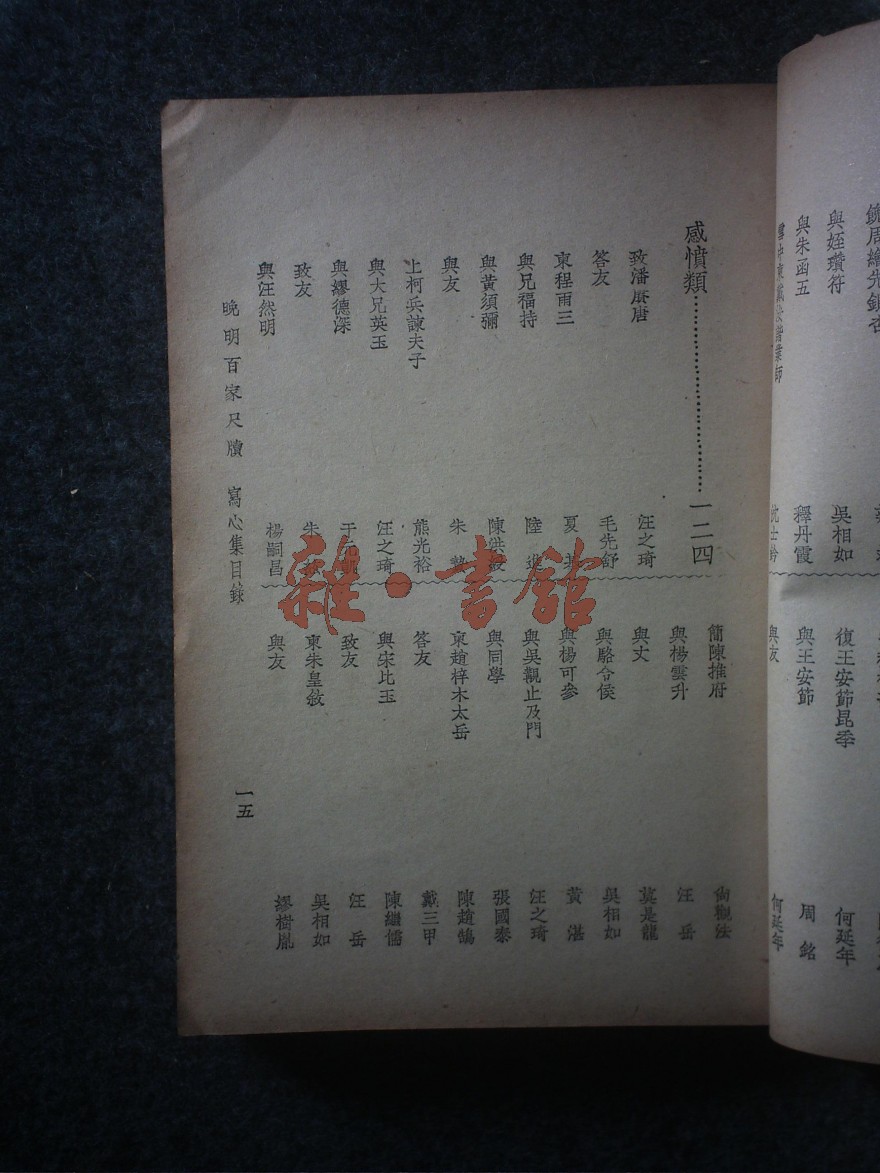 與姪瓚符
吳相如
與朱函五
釋丹霞
復王安節昆季
何廷年
與王安節
周銘
與友
何廷年
感憤類……………………一二四
致潘賡唐
汪之琦
答友
毛先舒
柬程雨三
夏基
與兄福持
陸進
與黃須彌
陳洪綬
與友
朱
上柯兵諫夫子
熊光裕
與大兄英玉
汪之琦
與繆德深
致友
朱
與汪然明
楊嗣昌
簡陳推府
尚觀法
與楊雲升
汪岳
與丈
莫是龍
與駱令侯
吳相如
與楊可參
黃湛
與吳觀止及門
汪之琦
與同學
張國泰
柬趙梓木太岳
陳趙鵠
答友
戴三甲
與宋比玉
陳繼儒
致友
汪岳
柬朱皇敘
吳相如
與友
繆樹胤
晚明百家尺牘 寫心集目錄
一五
雜·書館